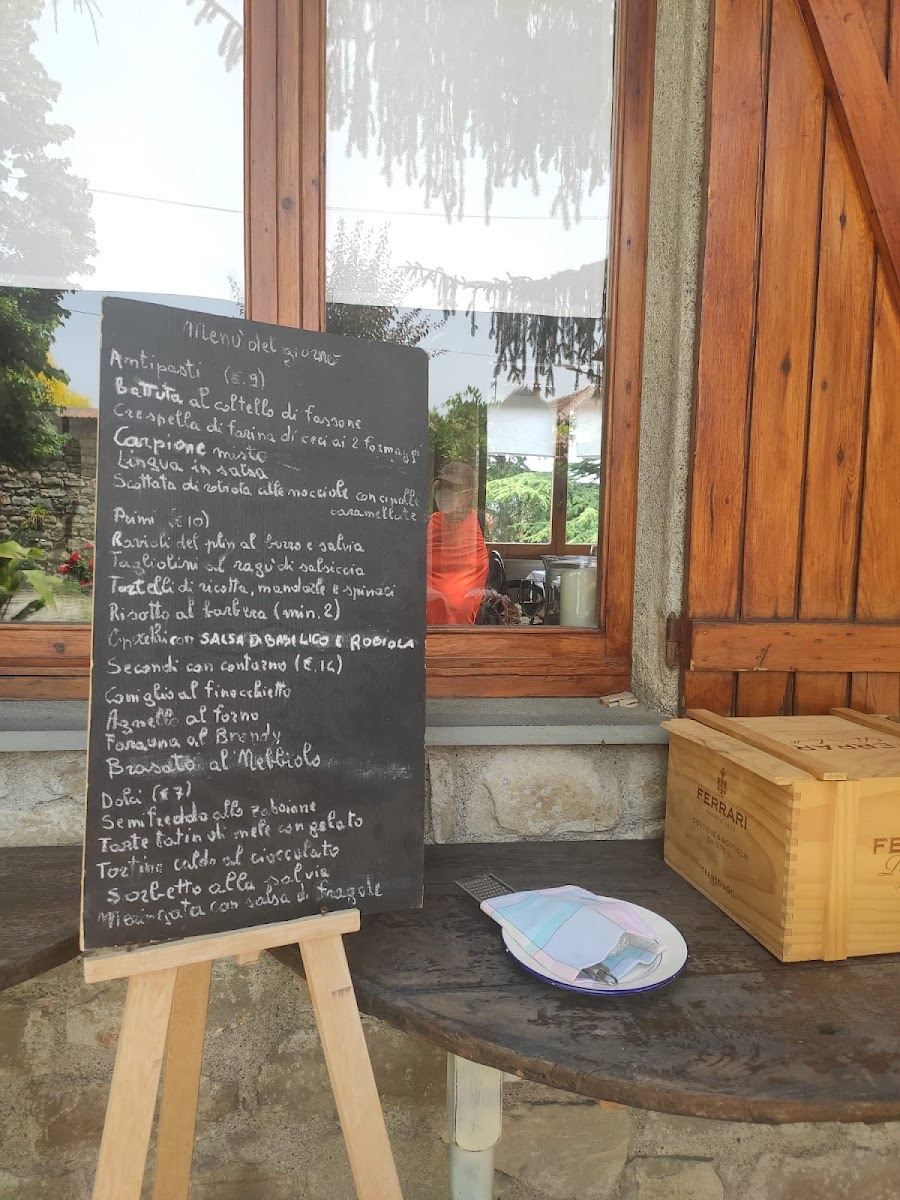 Menù del giorno
Antipasti (€.9)
Battuta al coltello di fassone
Crespella di farina di ceci ai 2 formaggi
Carpione misto
Lingua in salsa
Scottata di robiola alle nocciole con cipolle
caramellate
Primi (€10)
Ravioli del plin al burro e salvia
Tagliolini al ragù di salsiccia
Tortelli di ricotta, mandorle e spinaci
Risotto al barbera (min. 2)
con SALSA DI BASILICO E ROBIOLA
Secondi con contorno (€.14)
Coniglio al finocchietto
Agnello al forno
Faraona al Brandy
Brasato al Nebbiolo
Dolci (€7)
Semifreddo allo zabaione
Tarte tatin di mele con gelato
Tortino caldo al cioccolato
Sorbetto alla salvia
Meringata con salsa di fragole
FERRARI
FERRARI
TRENTODOC
FE